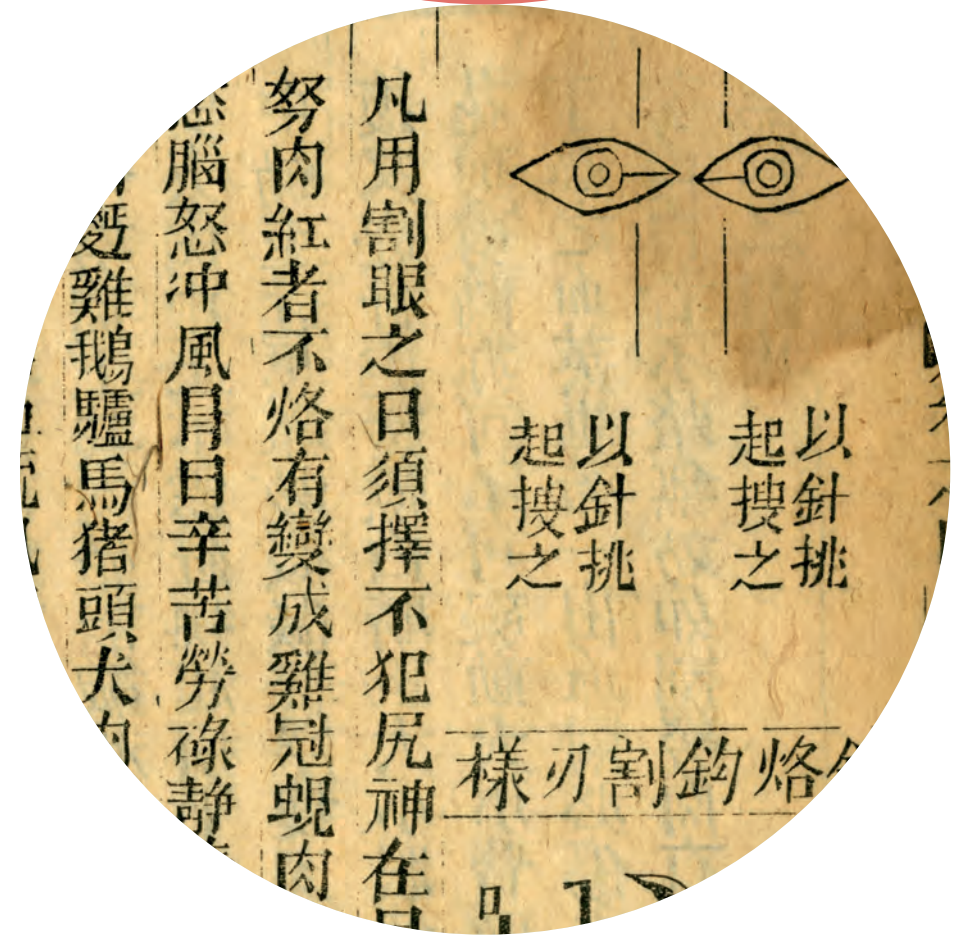 以針挑
起搜之
以針挑
起搜之
烙鈎割刃樣
凡用割眼之日須擇不犯尻神在
努肉紅者不烙有變成雞冠蜆肉
腦怒冲風冒日辛苦勞祿静
雞鵝驢馬猪頭犬肉